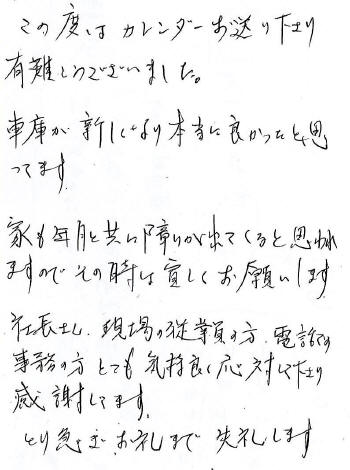 この度はカレンダーお送り下さり
有難とうございました。
車庫が新しくなり本当に良かったと、思
ってます
家も年月と共に障りが出てくると思われ
ますのでその時は宜しくお願いします
社長さん、現場の従業員の方、電話での
事務の方とても気持良く応対して下さり
感謝してます。
とり急ぎお礼まで失礼します